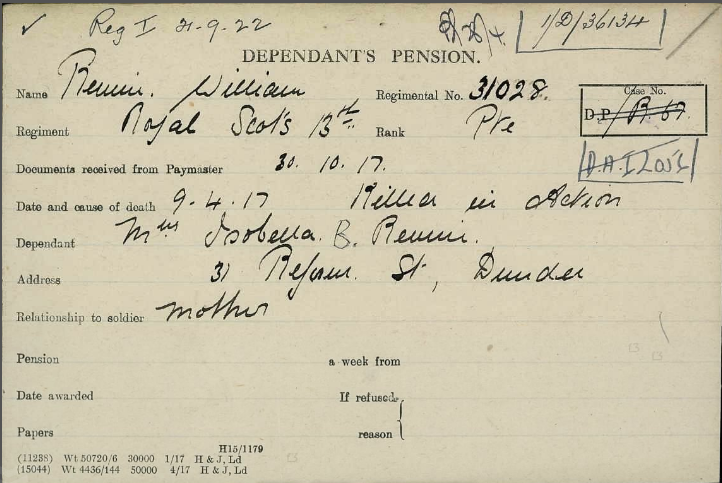 ✓ Reg I 21-9-22 1/D/36134
DEPENDANT'S PENSION.
Name William Regimental No. 31028.
Case No.
D.P./B.67.
Regiment Royal Scots 13th Rank Pte
Documents received from Paymaster 30. 10. 17.
Date and cause of death 9-4-17 Killed in Action
Dependant Mrs Isabella B.
Address 31 Reform St, Dundee
Relationship to soldier Mother
Pension a week from
Date awarded If refused,
Papers reason
H15/1179
(11238) Wt 50720/6 30000 1/17 H & J, Ld
(15044) Wt 4436/144 50000 4/17 H & J, Ld